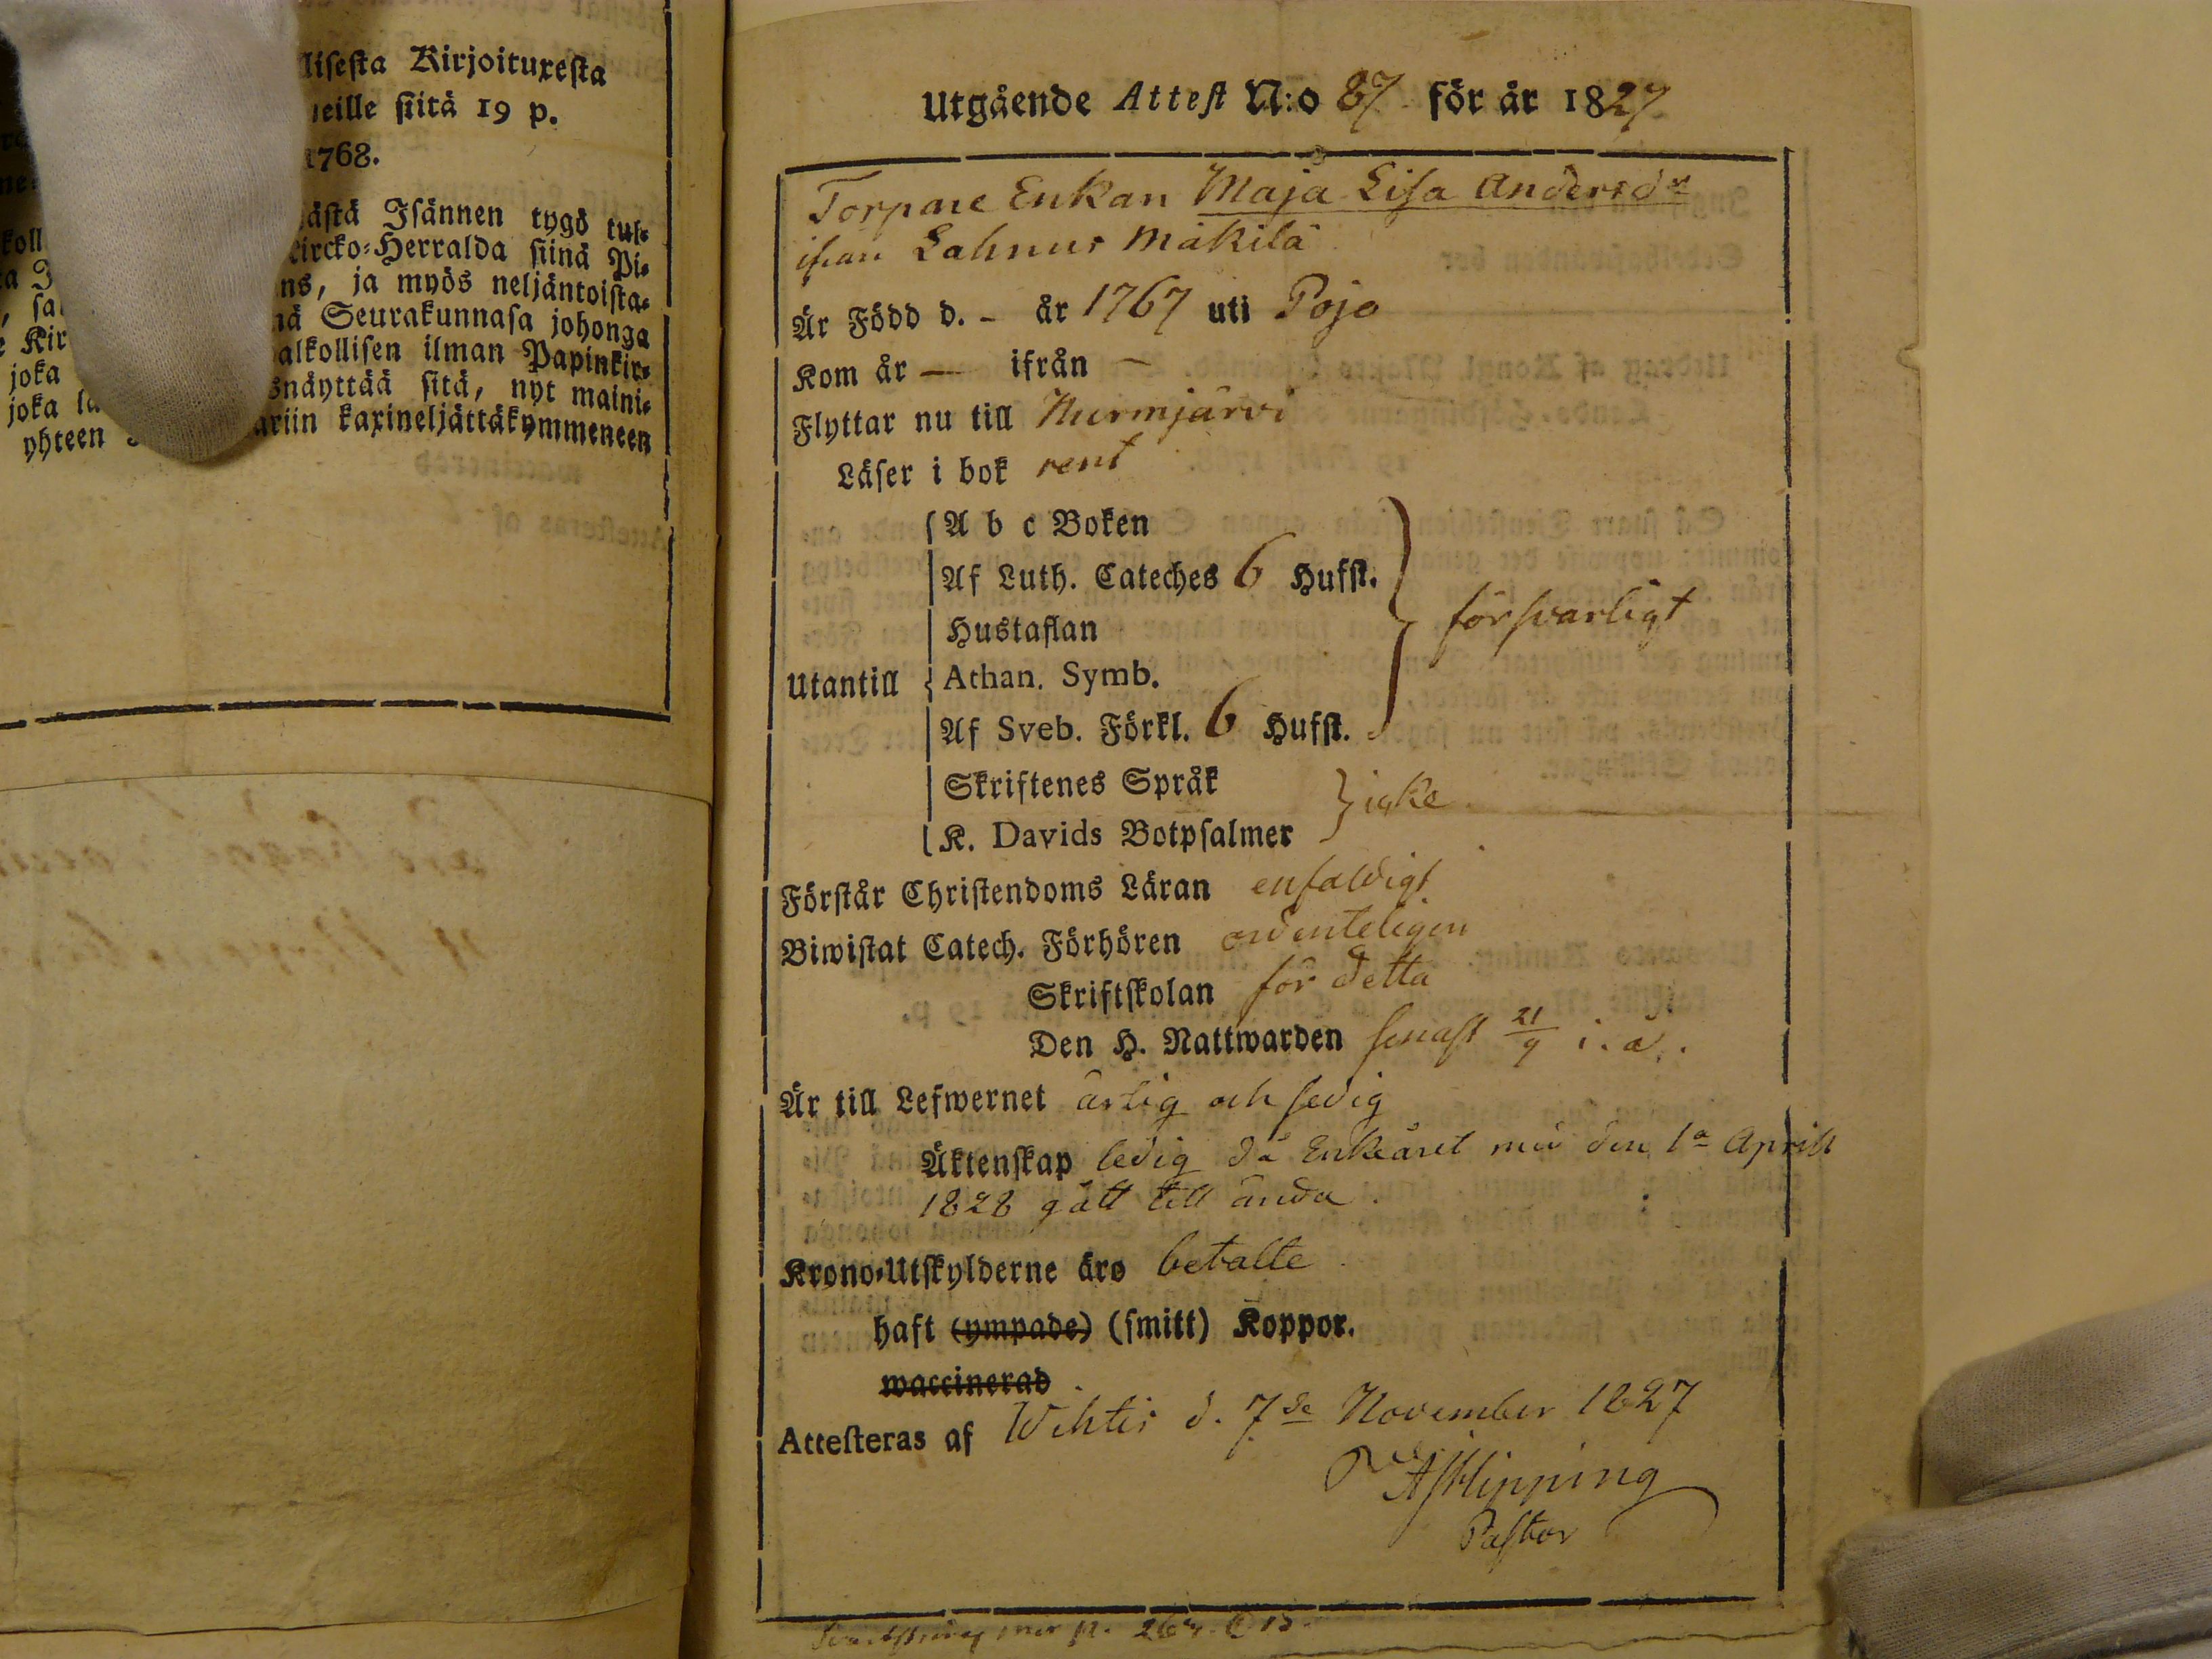 lisesta Kirjoituxesta
neille siitä 19 p.
1768.
ästä Isännen tygö tul-
Kircko-Herralda siinä Pi-
ns, ja myös neljäntoista-
nä Seurakunnasa johonga
alkollisen ilman Papinkir-
snäyttää sitä, nyt maini-
ariin kaxineljättäkymmeneen
joka
joka la
yhteen
Utgående Attest N:o 87 för år 1827
Torpare Enkan Maja Lisa Andersdr
ifrån Lahnus Mäkilä
Är Född d. - år 1767 uti Pojo
Kom år — ifrån —
Flyttar nu till Nurmjärvi
Läser i bok rent
A b c Boken
Af Luth. Cateches 6 Hufst.
Hustaflan
försvarligt
Utantill Athan. Symb.
Af Sveb. Förkl. 6 Hufst.
Skriftenes Språk
icke
K. Davids Botpsalmer
Förstår Christendoms Läran enfaldigt
Biwistat Catech. Förhören ordenteligen
Skriftskolan för detta
Den H. Nattwarden senast 21/9 i. a.
Är till Lefwernet ärlig och sedig
Äktenskap ledig då Enkeåret med den 1a Aprill
1828 gått till ända.
Krono-Utskylderne äro betalte
haft (ympade) (smitt) Koppor.
waccinerad
Attesteras af Wihtis d. 7de November 1827
A J Hipping
Pastor